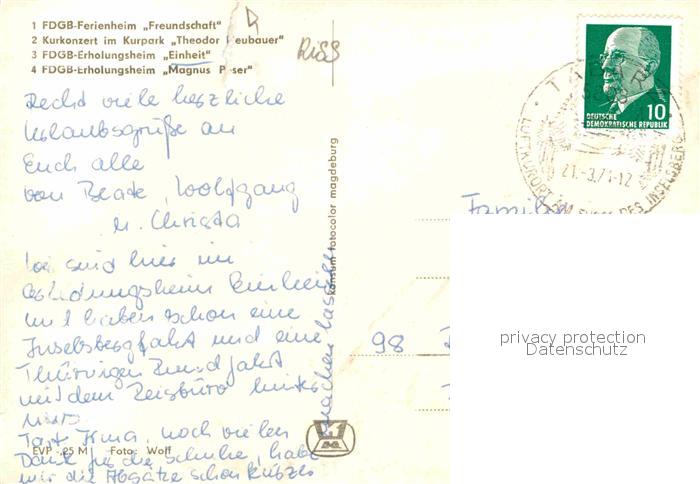 1 FDGB-Ferienheim „Freundschaft"
2 Kurkonzert im Kurpark „Theodor Neubauer"
3 FDGB-Erholungsheim „Einheit"
4 FDGB-Erholungsheim „Magnus Poser"
RISS
Recht viele herzliche
Urlaubsgrüße an
Euch alle
von Beate, Wolfgang
u. Christa
sind hier im
Erholungsheim Einheit
und haben schon eine
Inselsbergfahrt und eine
Thüringen Rundfahrt
mit dem Reisbüro hinter
uns.
Irma, noch vielen
Dank für die Schuhe, habe
mir die Absätze schon kürzer
machen lassen
EVP -,25 M Foto: Wolf
konsum fotocolor magdeburg
10
DEUTSCHE
DEMOKRATISCHE REPUBLIK
TABARZ
LUFTKURORT AM FUSSE DES INSELSBERG
21.-3.71-12
Familie
98
privacy protection
Datenschutz